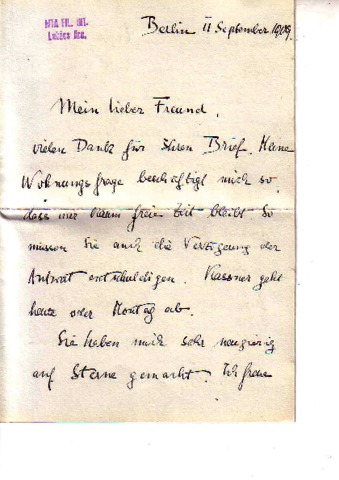 MTA FIL. INT.
Lukács Arc.
Berlin 11 September 1909.
Mein lieber Freund,
vielen Dank für Ihren Brief. Meine
Wohnungsfrage beschäftigt mich so,
dass mir kaum freie Zeit bleibt. So
müssen Sie auch die Verzögerung der
Antwort entschuldigen. Kassner geht
heute oder Montag ab.
Sie haben mich sehr neugierig
auf Sterne gemacht. Ich freue